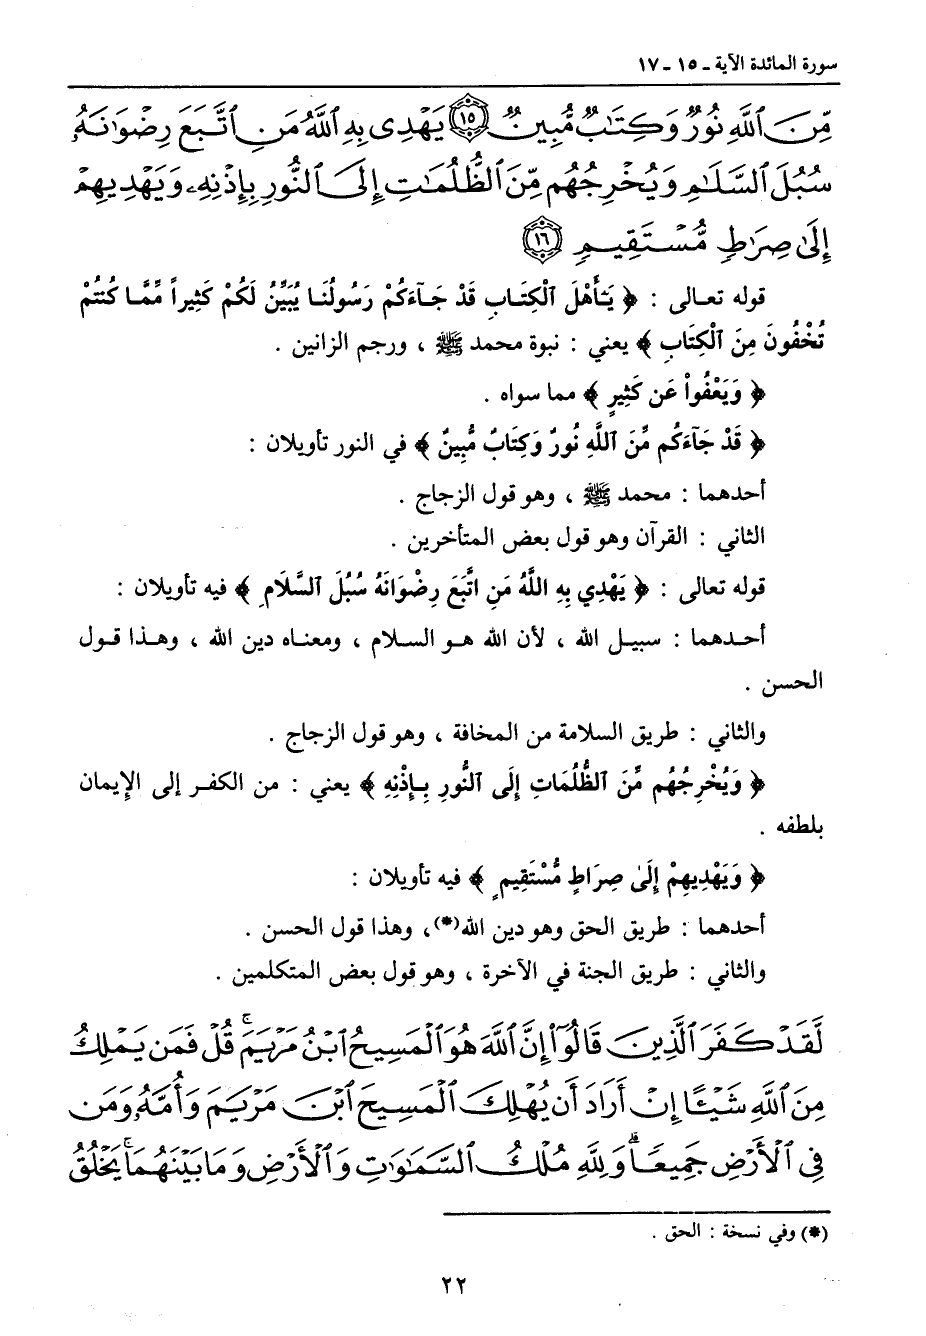 سورة المائدة الآية ـ ١٥ ـ ١٧
مِّنَ ٱللَّهِ نُورٌ وَكِتَٰبٌ مُّبِينٌ ١٥ يَهْدِى بِهِ ٱللَّهُ مَنِ ٱتَّبَعَ رِضْوَٰنَهُۥ
سُبُلَ ٱلسَّلَٰمِ وَيُخْرِجُهُم مِّنَ ٱلظُّلُمَٰتِ إِلَى ٱلنُّورِ بِإِذْنِهِۦ وَيَهْدِيهِمْ
إِلَىٰ صِرَٰطٍ مُّسْتَقِيمٍ ١٦
قوله تعالى : ﴿ يَـٰٓأَهْلَ ٱلْكِتَابِ قَدْ جَآءَكُمْ رَسُولُنَا يُبَيِّنُ لَكُمْ كَثِيراً مِّمَّا كُنتُمْ
تُخْفُونَ مِنَ ٱلْكِتَابِ ﴾ يعني : نبوة محمد ﷺ ، ورجم الزانين .
﴿ وَيَعْفُواْ عَن كَثِيرٍ ﴾ مما سواه .
﴿ قَدْ جَآءَكُم مِّنَ ٱللَّهِ نُورٌ وَكِتَابٌ مُّبِينٌ ﴾ في النور تأويلان :
أحدهما : محمد ﷺ ، وهو قول الزجاج .
الثاني : القرآن وهو قول بعض المتأخرين .
قوله تعالى : ﴿ يَهْدِي بِهِ اللَّهُ مَنِ اتَّبَعَ رِضْوَانَهُ سُبُلَ ٱلسَّلَامِ ﴾ فيه تأويلان :
أحدهما : سبيل الله ، لأن الله هو السلام ، ومعناه دين الله ، وهذا قول
الحسن .
والثاني : طريق السلامة من المخافة ، وهو قول الزجاج .
﴿ وَيُخْرِجُهُم مِّنَ ٱلظُّلُمَاتِ إِلَى ٱلنُّورِ بِإِذْنِهِ ﴾ يعني : من الكفر إلى الإيمان
بلطفه .
﴿ وَيَهْدِيهِمْ إِلَىٰ صِرَاطٍ مُّسْتَقِيمٍ ﴾ فيه تأويلان :
أحدهما : طريق الحق وهو دين الله(*)، وهذا قول الحسن .
والثاني : طريق الجنة في الآخرة ، وهو قول بعض المتكلمين .
لَّقَدْ كَفَرَ ٱلَّذِينَ قَالُوٓا۟ إِنَّ ٱللَّهَ هُوَ ٱلْمَسِيحُ ٱبْنُ مَرْيَمَ ۚ قُلْ فَمَن يَمْلِكُ
مِنَ ٱللَّهِ شَيْـًٔا إِنْ أَرَادَ أَن يُهْلِكَ ٱلْمَسِيحَ ٱبْنَ مَرْيَمَ وَأُمَّهُۥ وَمَن
فِى ٱلْأَرْضِ جَمِيعًا ۗ وَلِلَّهِ مُلْكُ ٱلسَّمَٰوَٰتِ وَٱلْأَرْضِ وَمَا بَيْنَهُمَا ۚ يَخْلُقُ
(*) وفي نسخة : الحق .
٢٢